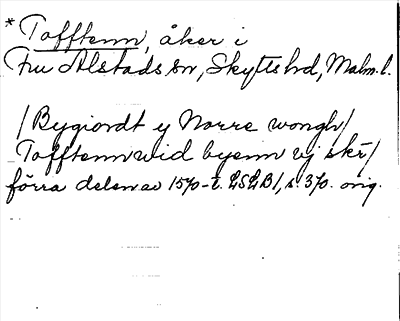 * Tofftenn, åker i
Fru Alstads sn, Skytts hd, Malm. l.
/Bygiordt y Norre wongh/
Tofftenn wid byenn vj skr/
förra delen av 1570-t. LSLB1, s. 370. orig.